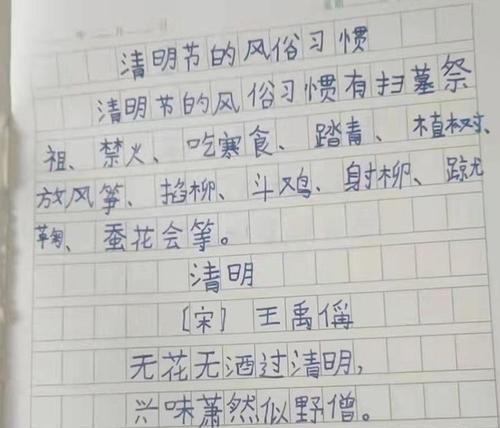 清明节的风俗习惯
清明节的风俗习惯有扫墓祭
祖、禁火、吃寒食、踏青、植树、
放风筝、掐柳、斗鸡、射柳、蹴
鞠、蚕花会等。
清明
[宋] 王禹偁
无花无酒过清明,
兴味萧然似野僧。